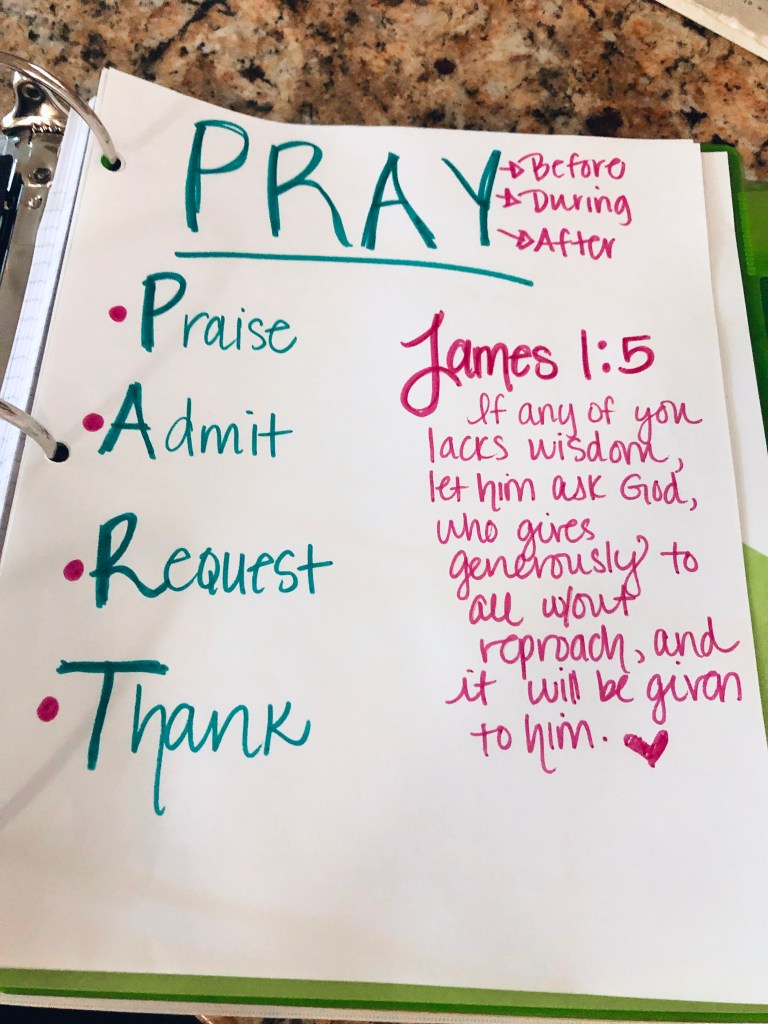 PRAY
Before
During
After
• Praise
• Admit
• Request
• Thank
James 1:5
If any of you
lacks wisdom,
let him ask God,
who gives
generously to
all w/out
reproach, and
it will be given
to him.